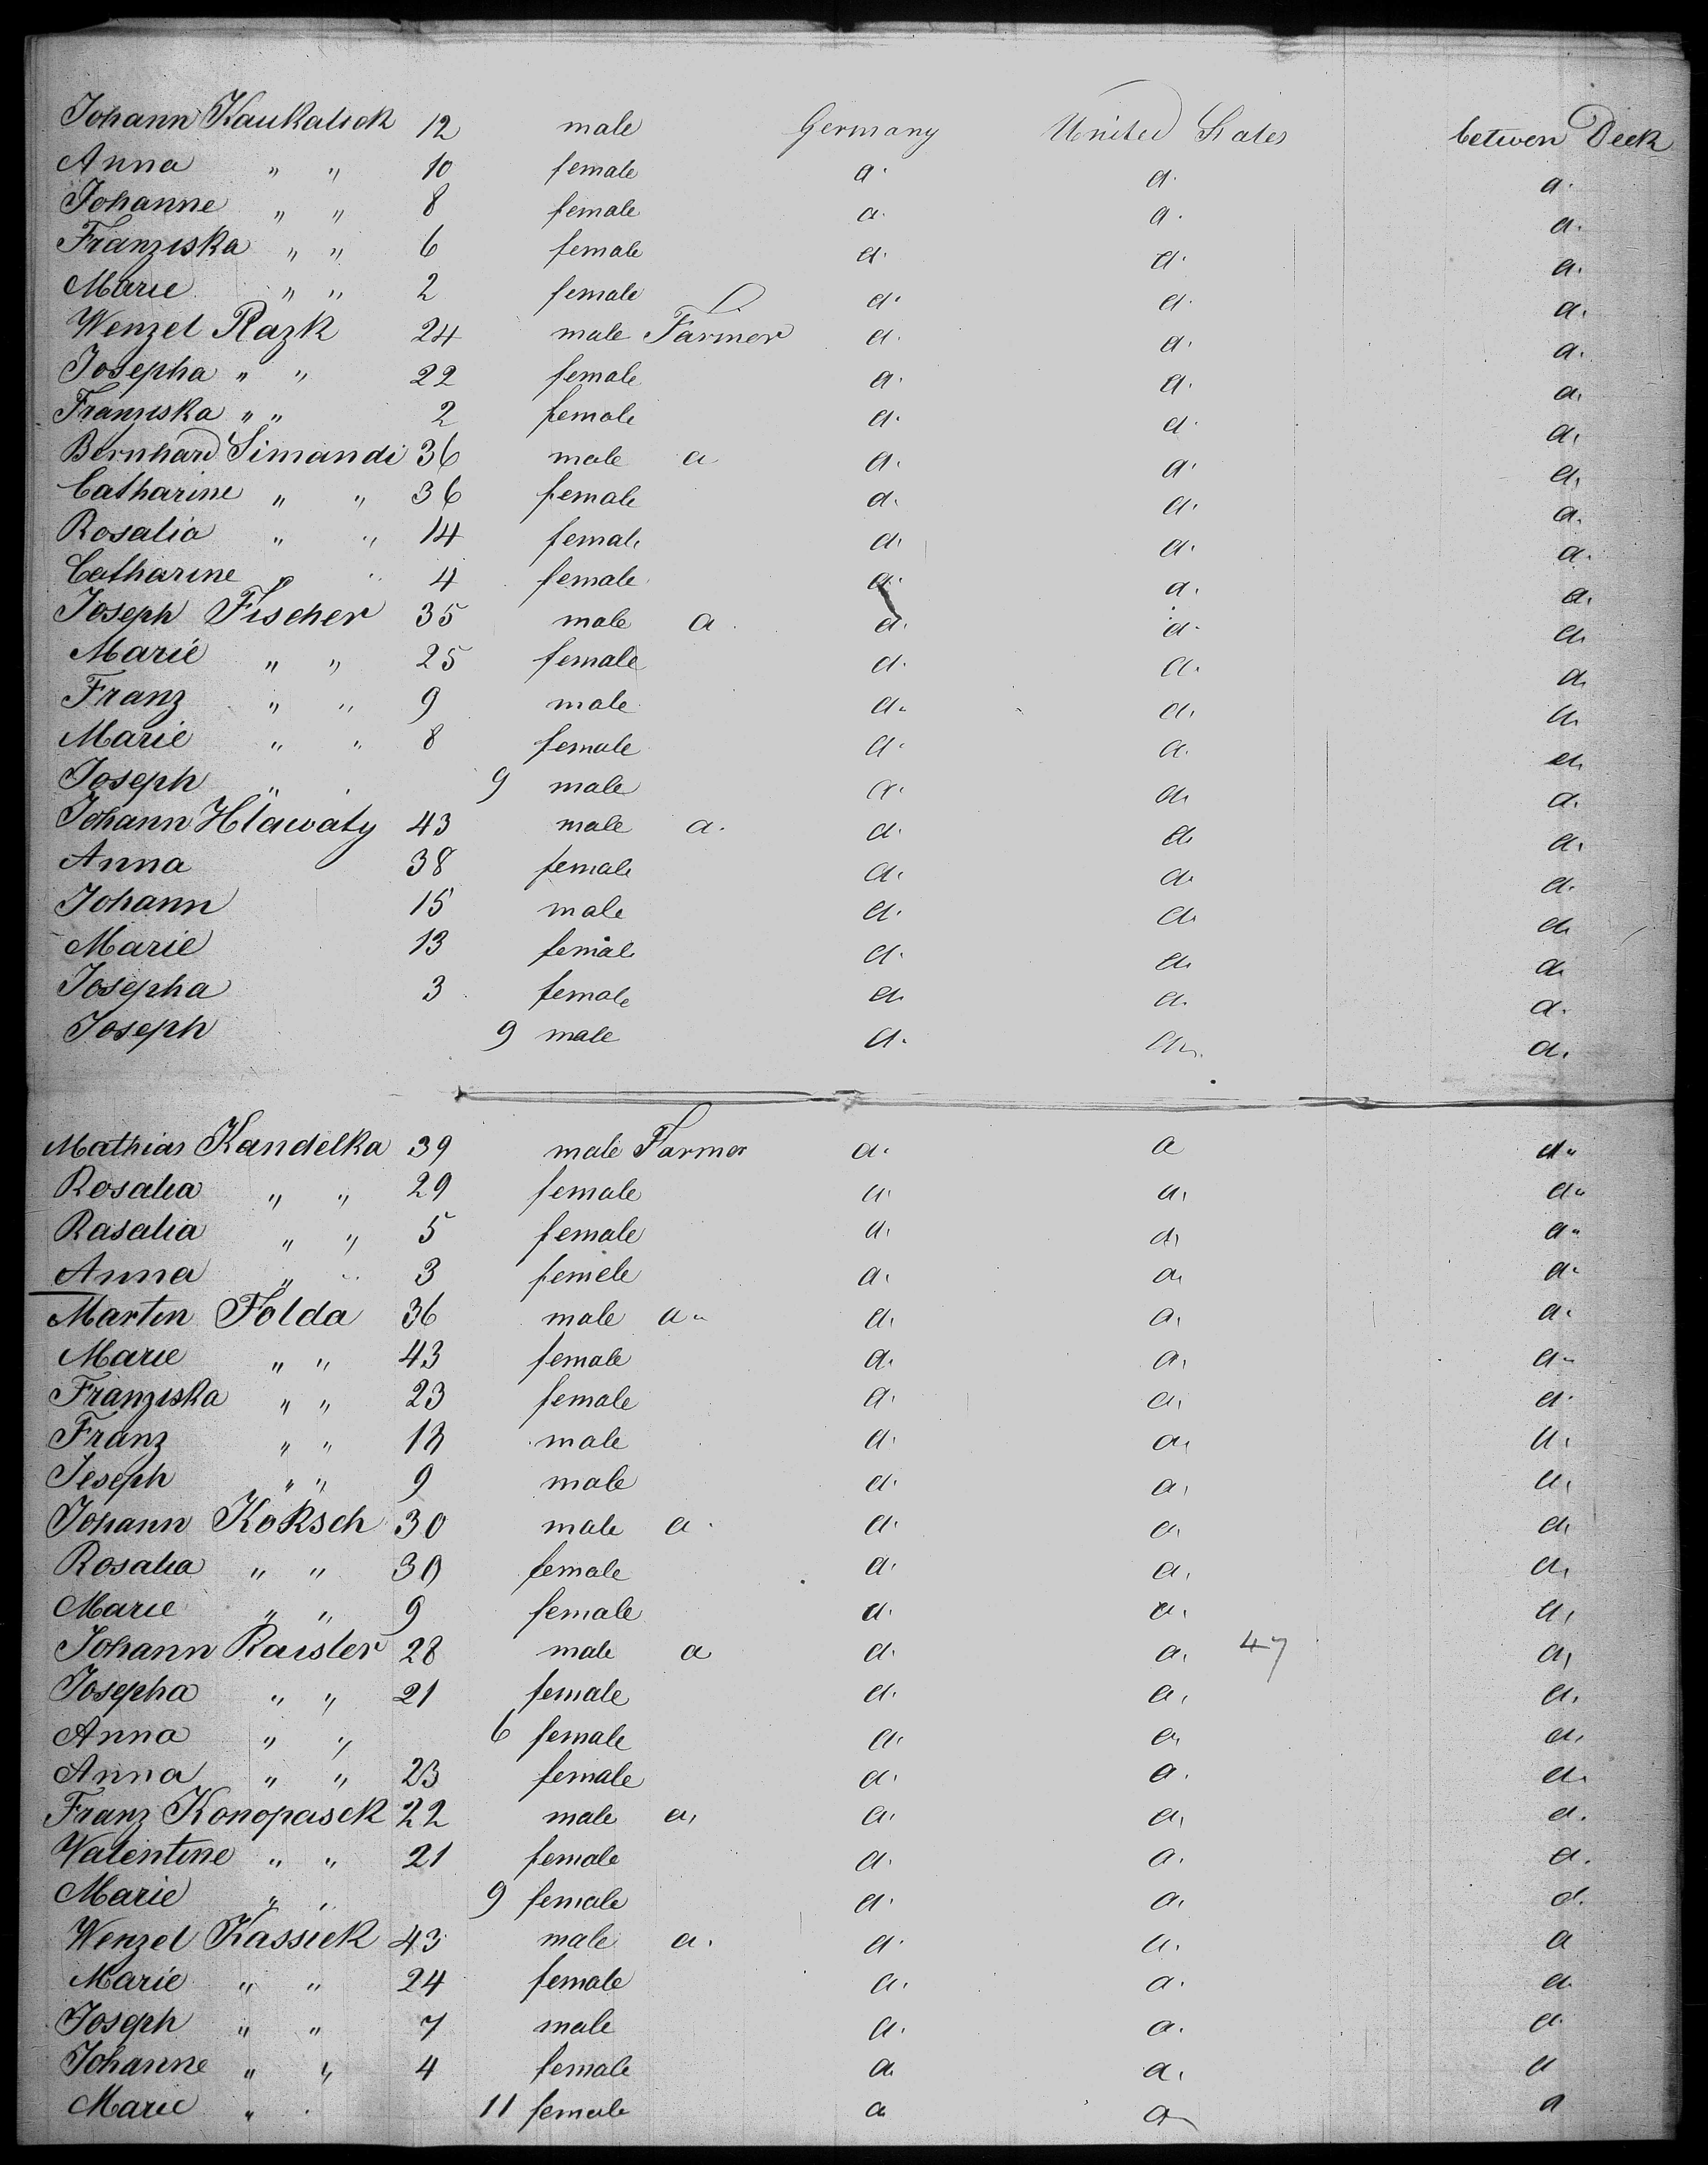 Johann Kaukalick 12 male Germany United States betwen Deck
Anna " " 10 female a. a. a.
Johanne " " 8 female a. a. a.
Franziska " " 6 female a. a. a.
Marie " " 2 female a. a. a.
Wenzel Razk 24 male Farmer a. a. a.
Josepha " " 22 female a. a. a.
Franziska " " 2 female a. a. a.
Bernhard Simandi 36 male a a. a. a.
Catharine " " 36 female a. a. a.
Rosalia " " 14 female a. a. a.
Catharine " " 4 female a. a. a.
Joseph Fischer 35 male a. a. a. a.
Marie " " 25 female a. a. a.
Franz " " 9 male a. a. a.
Marie " " 8 female a. a. a.
Joseph " 9 male a. a. a.
Johann Hlawaty 43 male a. a. a. a.
Anna 38 female a. a. a.
Johann 15 male a. a. a.
Marie 13 female a. a. a.
Josepha 3 female a. a. a.
Joseph 9 male a. a. a.
Mathias Kandelka 39 male Farmer a. a a.
Rosalia " " 29 female a. a. a.
Rasalia " " 5 female a. a. a.
Anna " " 3 femele a. a. a.
Marten Folda 36 male a. a. a. a.
Marie " " 43 female a. a. a.
Franziska " " 23 female a. a. a.
Franz " " 18 male a. a. a.
Jeseph " " 9 male a. a. a.
Johann Koksch 30 male a. a. a. a.
Rosalia " " 30 female a. a. a.
Marie " " 9 female a. a. a.
Johann Raisler 28 male a a. a. 47 a.
Josepha " " 21 female a. a. a.
Anna " " 6 female a. a. a.
Anna " " 23 female a. a. a.
Franz Konopasek 22 male a. a. a. a.
Valentine " " 21 female a. a. a.
Marie " " 9 female a. a. a.
Wenzel Kassiek 43 male a. a. a. a
Marie " " 24 female a. a. a.
Joseph " " 7 male a. a. a.
Johanne " " 4 female a. a. a
Marie " 11 female a a a